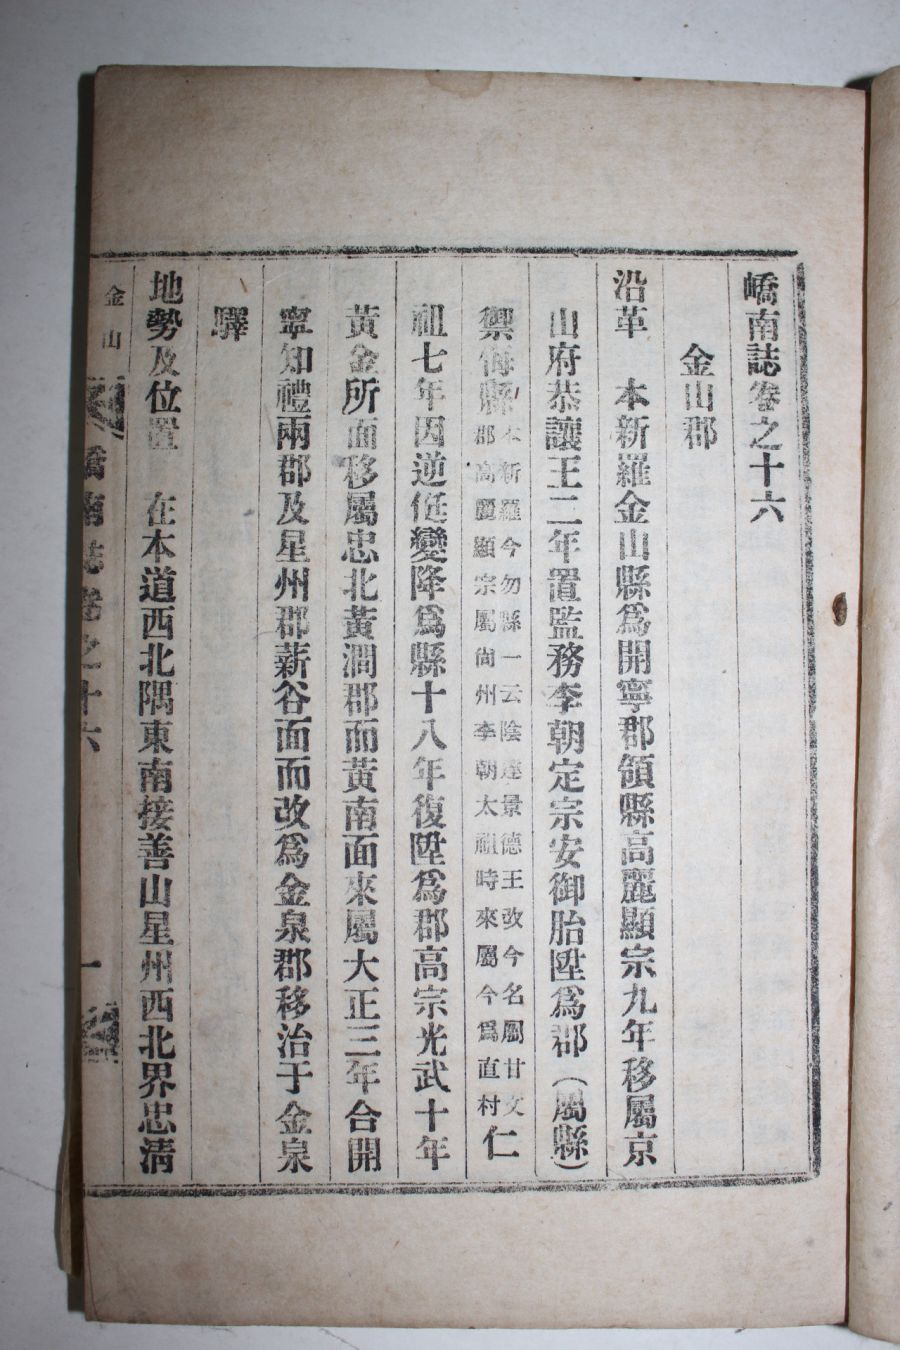 嶠南誌卷之十六
金山郡
沿革 本新羅金山縣爲開寧郡領縣高麗顯宗九年移屬京
山府恭讓王二年置監務李朝定宗安御胎陞爲郡（屬縣）
禦侮縣
本新羅今勿縣一云陰達景德王改今名屬甘文
郡高麗顯宗屬尙州李朝太祖時來屬今爲直村
仁
祖七年因逆侹變降爲縣十八年復陞爲郡高宗光武十年
黃金所面移屬忠北黃澗郡而黃南面來屬大正三年合開
寧知禮兩郡及星州郡薪谷面而改爲金泉郡移治于金泉
驛
地勢及位置 在本道西北隅東南接善山星州西北界忠淸
金山
嶠南誌卷之十六
一